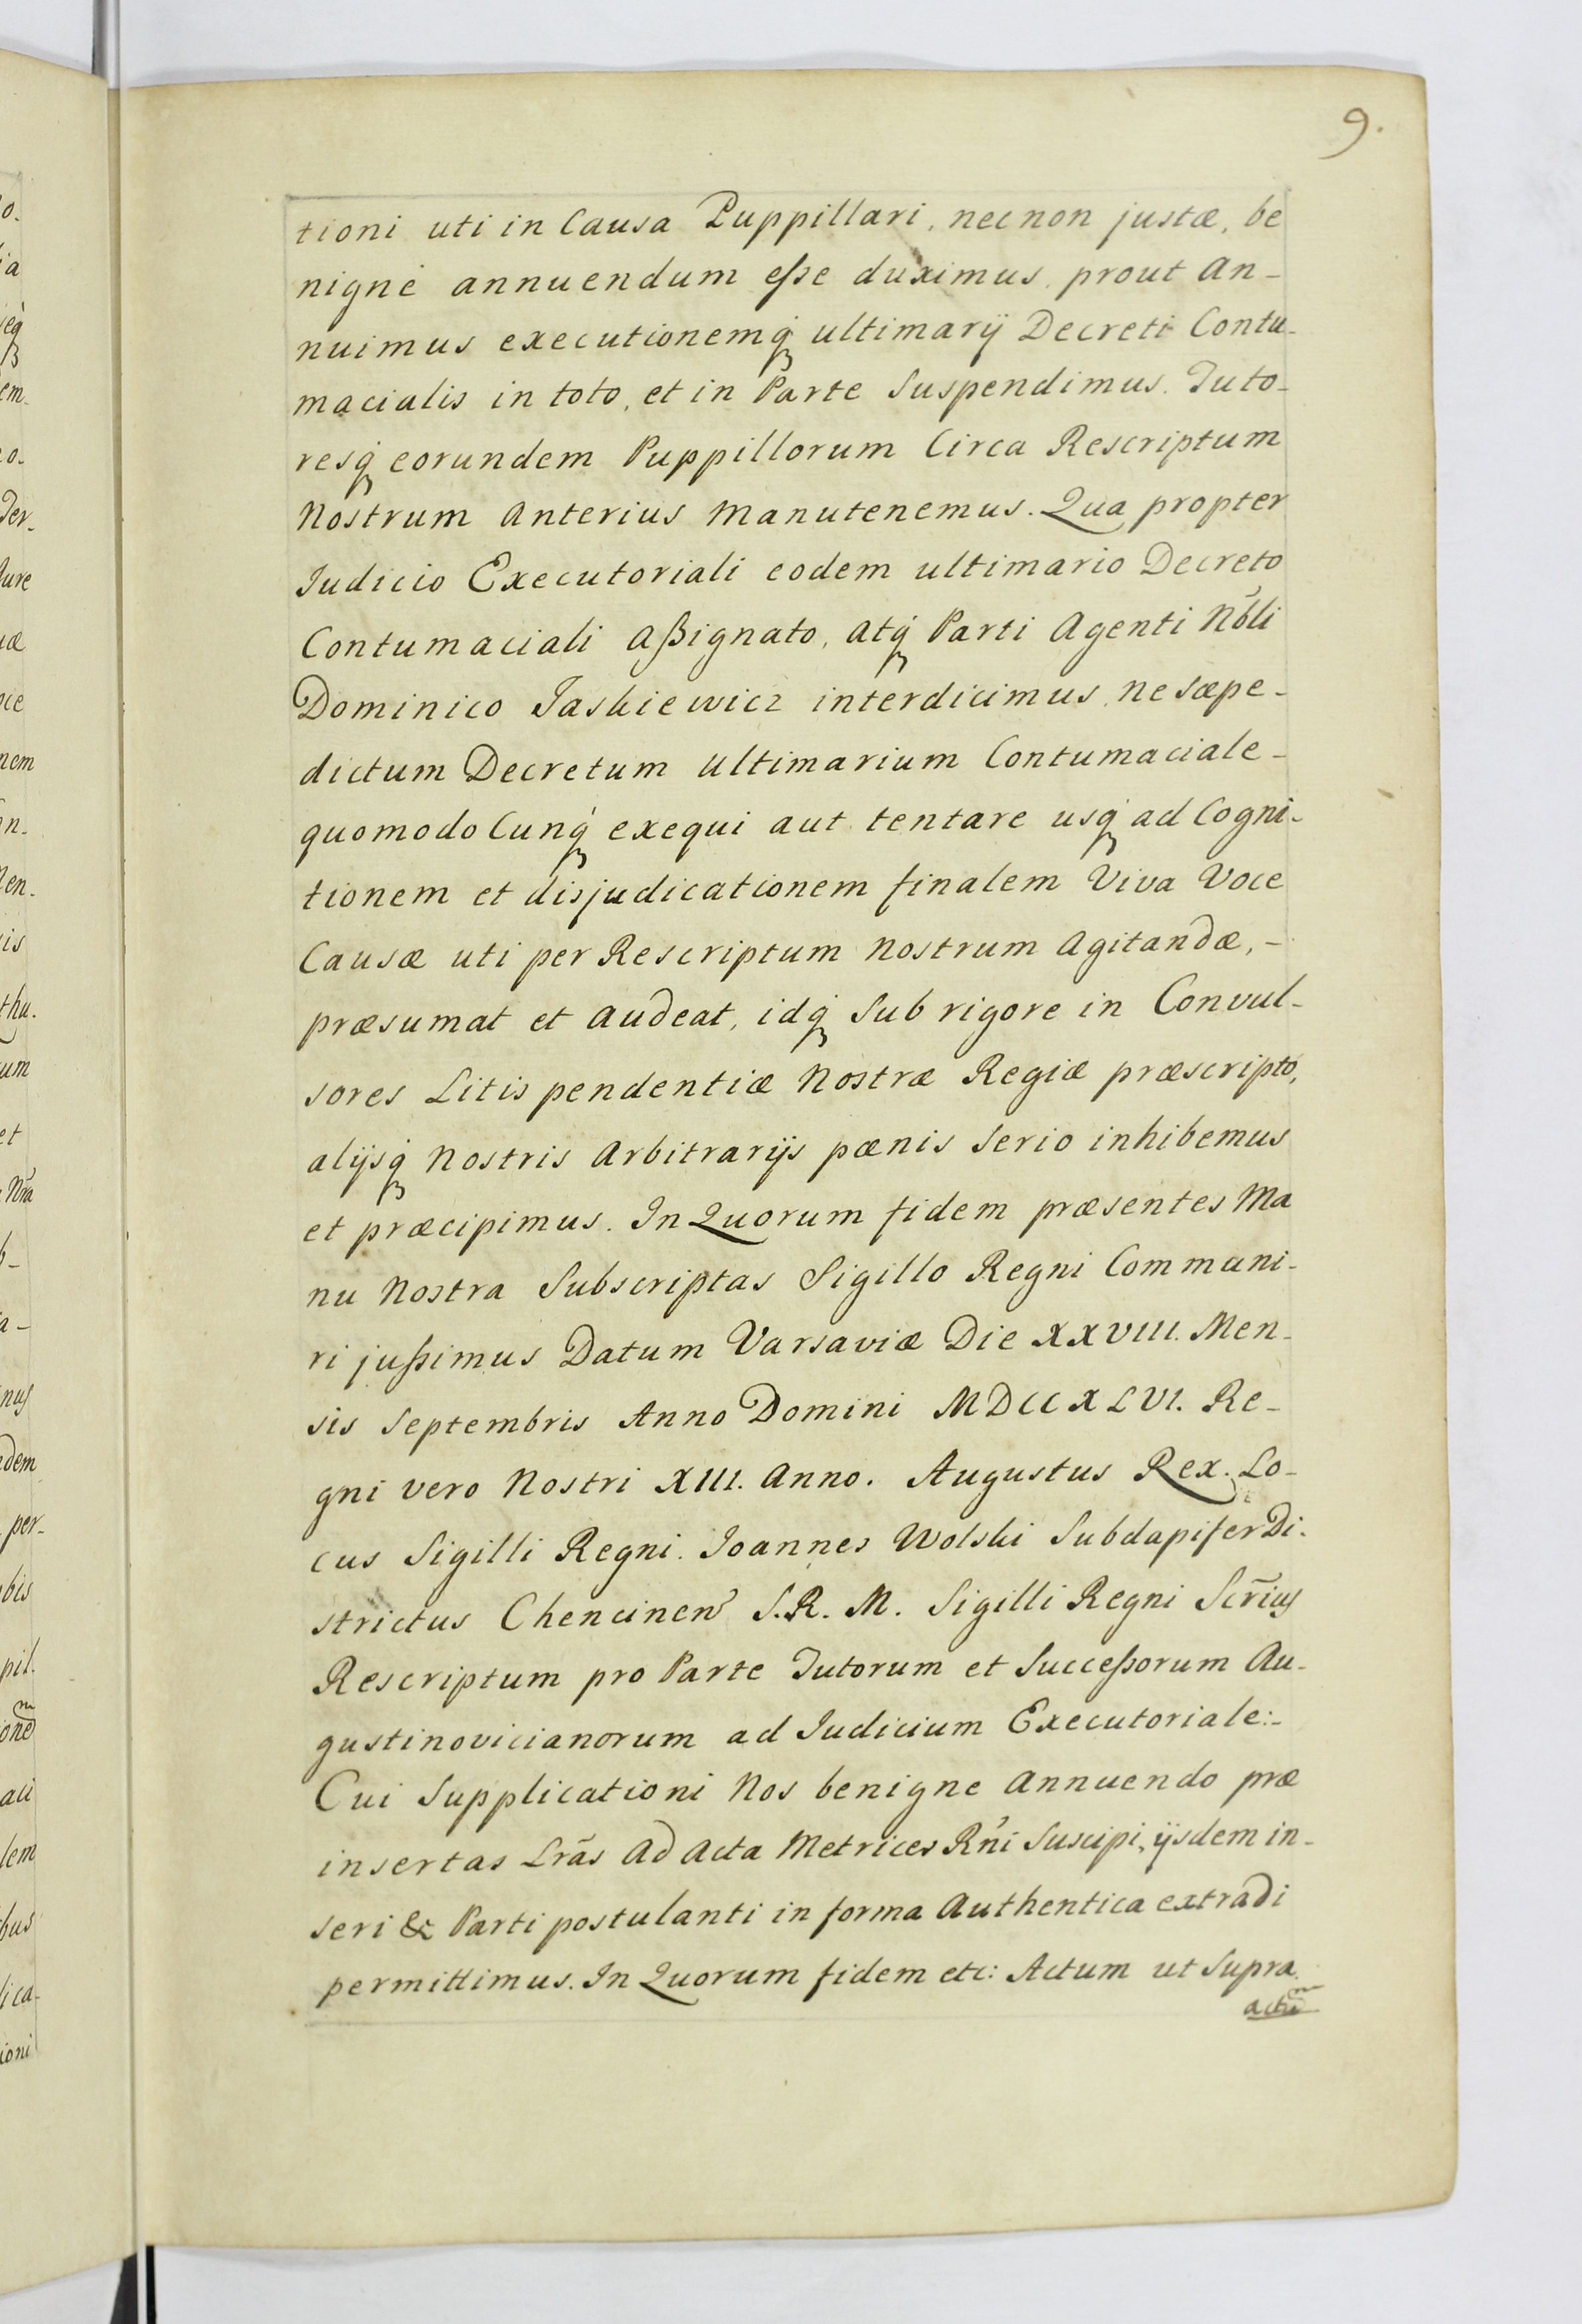 9.
tioni uti in Causa Puppillari, nec non justæ, be
nigne annuendum esse duximus, prout An-
nuimus executionemq́ ultimarij Decreti Contu-
macialis in toto, et in Parte Suspendimus. Tuto-
resq́ eorundem Puppillorum Circa Rescriptum
Nostrum Anterius Manutenemus. Qua propter
Iudicio Executoriali eodem ultimario Decreto
Contumaciali Aßignato, atq́ Parti Agenti Nb̃li
Dominico Jaskiewicz interdicimus, ne sæpe-
dictum Decretum Ultimarium Contumaciale-
quomodo Cunq́ exequi aut tentare usq́ ad Cogni-
tionem et disjudicationem finalem Viva Voce
Causæ uti per Rescriptum Nostrum Agitandæ,-
præsumat et Audeat, idq́ Sub rigore in Convul-
sores Litis pendentiæ Nostræ Regiæ præscripto,
alijsq́ Nostris Arbitrarijs pœnis serio inhibemus
et præcipimus. In Quorum fidem præsentes Ma
nu Nostra Subscriptas Sigillo Regni Communi-
ri jußimus Datum Varsaviæ Die XXVIII. Men-
sis Septembris Anno Domini MDCCXLVI. Re-
gni vero Nostri XIII. Anno. Augustus Rex. Lo-
cus Sigilli Regni. Joannes Wolski Subdapifer Di-
strictus Chencinen̄ S.R.M. Sigilli Regni Scr̃ius
Rescriptum pro Parte Tutorum et Succeßorum Au-
gustinovicianorum ad Iudicium Executoriale:-
Cui Supplicationi Nos benigne Annuendo præ
insertas Lrãs Ad Acta Metrices Rñi Suscipi, ijsdem in-
seri & Parti postulanti in forma Authentica extradi
permittimus. In Quorum fidem etc: Actum ut Supra.